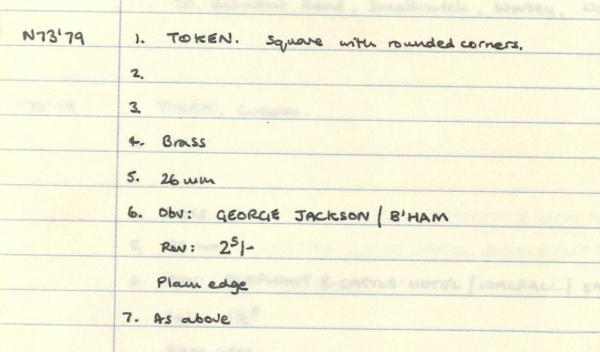 N73'79 1. TOKEN. Square with rounded corners.
2.
3.
4. Brass
5. 26 mm
6. Obv: GEORGE JACKSON / B'HAM
Rev: 2S/-
Plain edge
7. As above